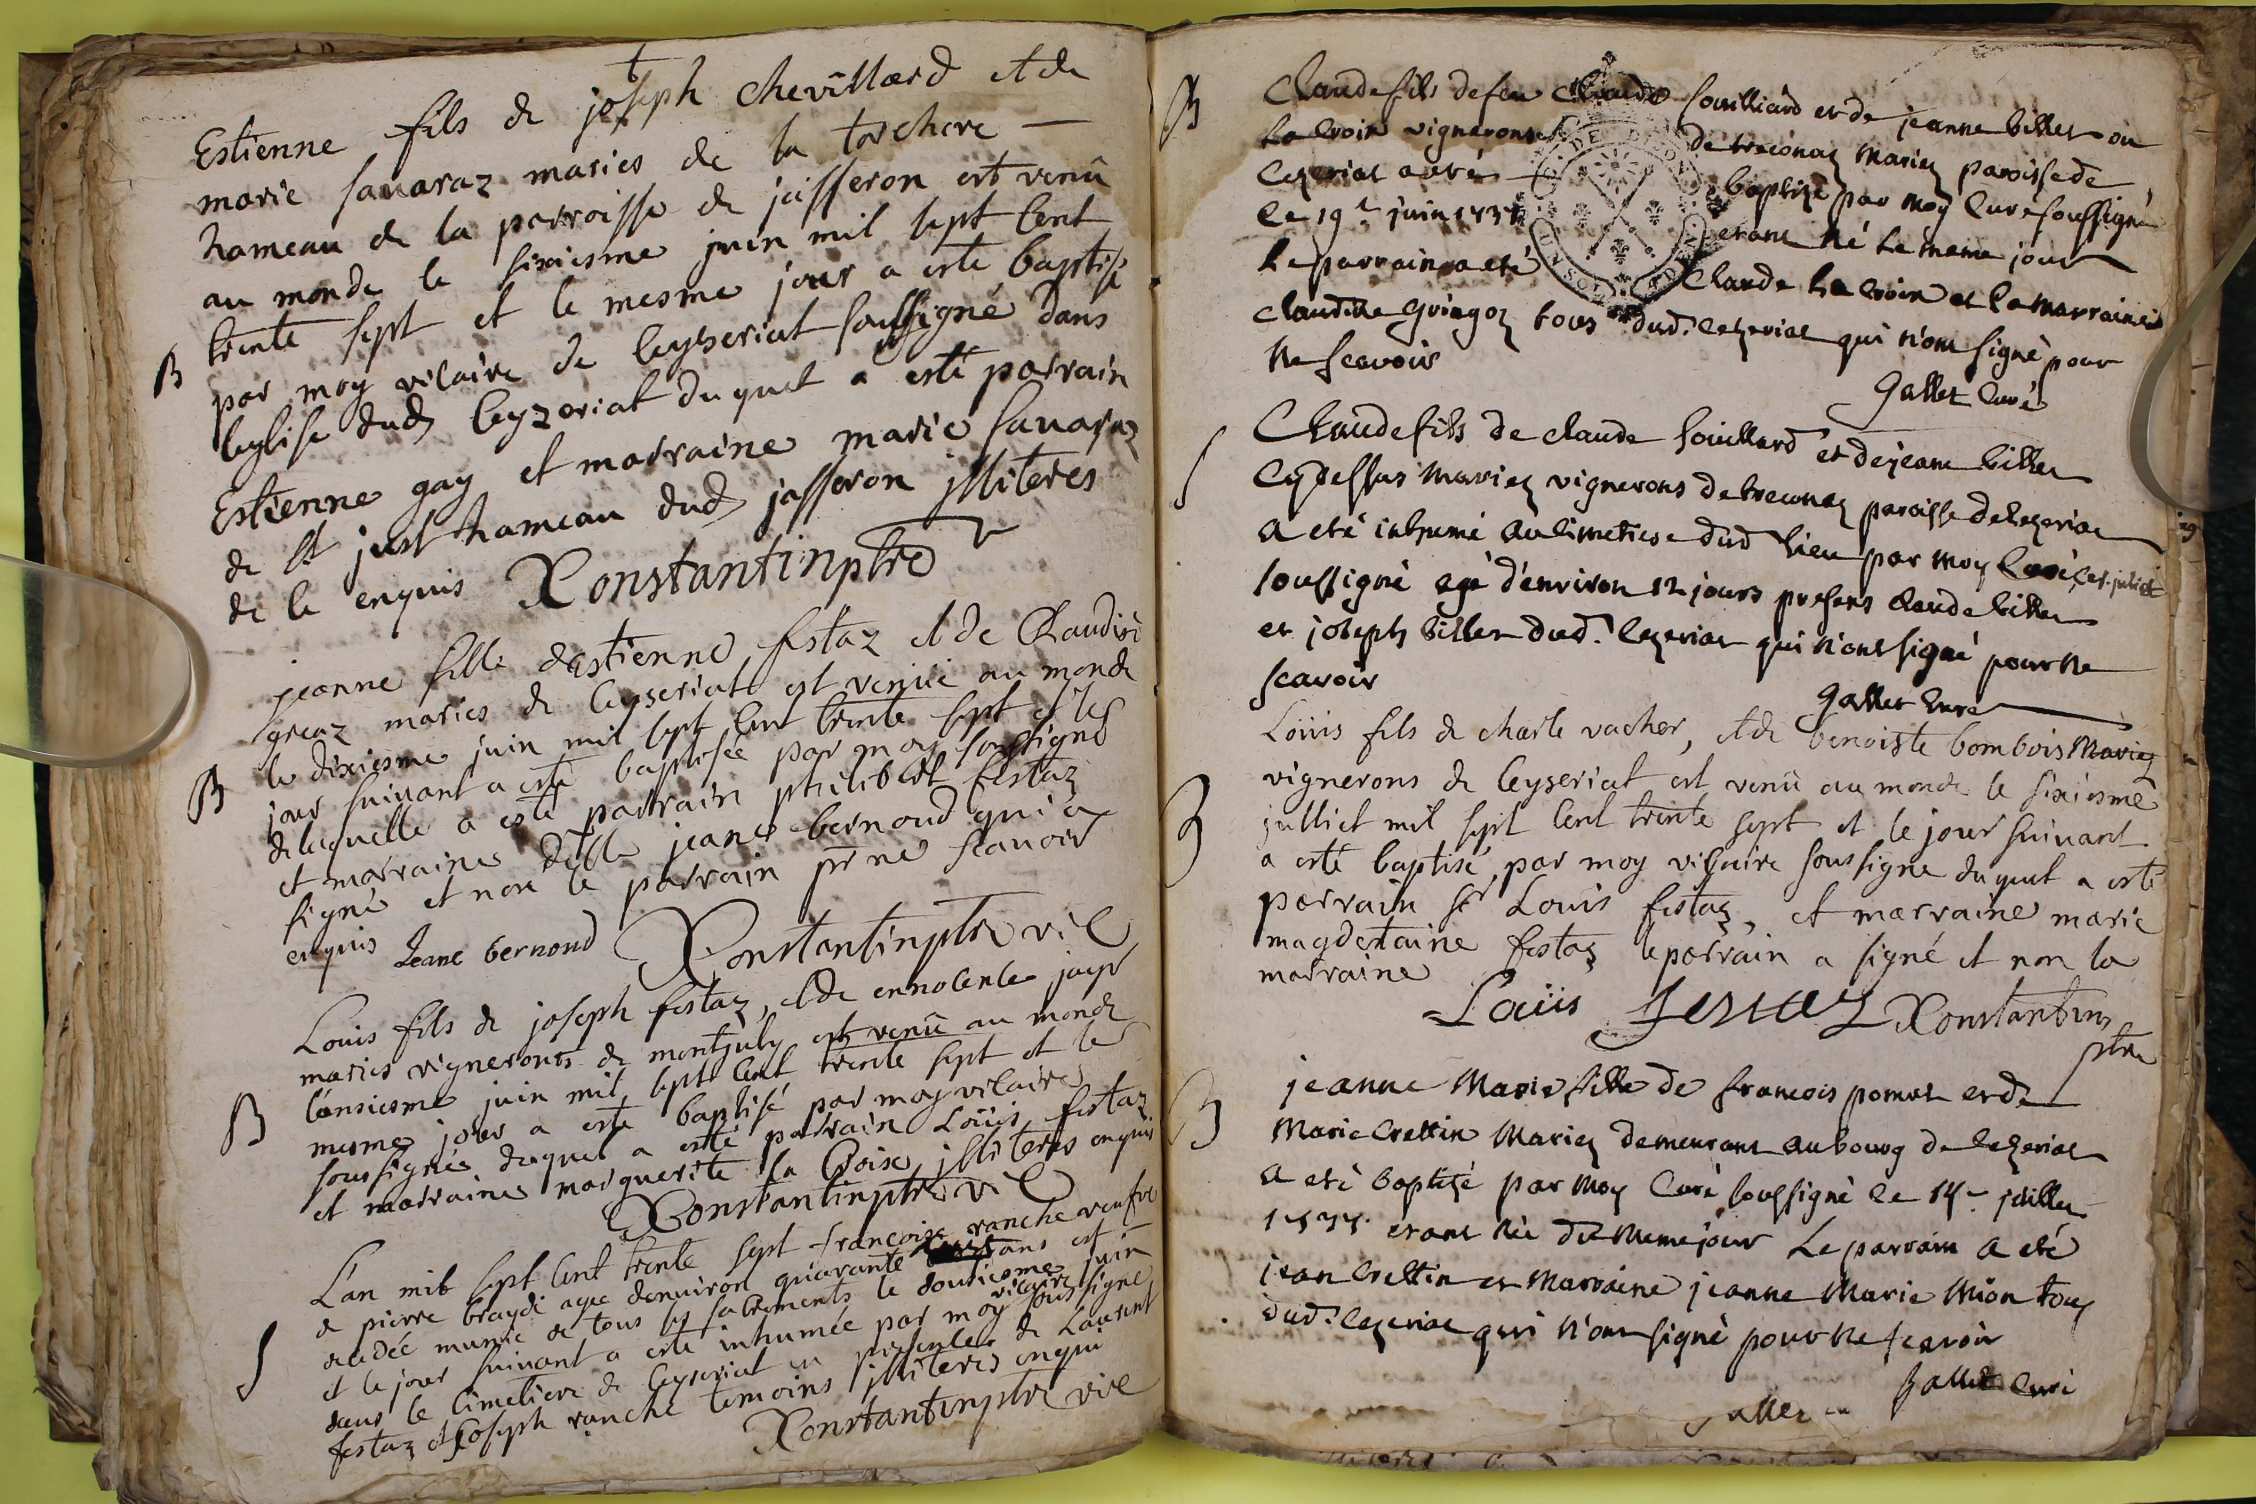 Estienne fils de joseph chevillard et de
marie savaraz maries de la torchere
hameau de la parroisse de jasseron est venû
au monde le sixiesme juin mil sept cent
trente sept et le mesme jour a esté baptisé
B
par moy vicaire de Ceyzeriat soussigné dans
leglise dud Ceyzeriat duquel a esté parrain
Estienne gay et marraine marie savaraz
de St just hameau dud jasseron illiteres
de ce enquis Constantin ptre
jeanne fille destienne festaz et de Claudine
greaz maries de Ceyseriat est venüe au monde
le dixiesme juin mil sept cent trente sept et le
B
jour suivant a esté baptisée par moy soussigné
de laquelle a esté parrain philibert festaz
et marraine dlle jeane bernoud qui a
signé et non le parrain pr ne scavoir
enquis Jeane bernoud Constantin ptre vic
Louis fils de joseph festaz, et de ennocente
maries vignerons de montjuly est venû au monde
lonsiesme juin mil sept cent trente sept et le
B
mesme jour a esté baptisé par moy vicaire
soussigné duquel a esté parrain Loüis festaz
et marraine marguerite la Croix illiteres enquis
Constantin ptre vic
L'an mil sept cent trente sept francoise ranche veufve
de pierre agee denviron quarante ans est
decedée munie de tous les sacrements le douziesme juin
S
et le jour suivant a esté inhumée par moy vicaire soussigné
dans le cimetiere de Ceyseriat en presence de Laurent
festaz et joseph ranche temoins illiteres enqui
Constantin ptre vic
B
Claude fils de feu Claude souilliard et de jeanne billet ou
la Croix vignerons de treconaz Mariez paroisse de
Cezeriat a eté baptizé par moy Curé soussigné
Le 19e juin 1737 etant né le meme jour
Le parrain a eté Claude La Croix et la marraine
Claudine gringoz tous dud. Cezeriat qui n'ont signé pour
ne scavoir
Gallet Curé
Claude fils de claude souillard et de jeane billet
S
cy dessus Mariez vignerons de treconaz paroisse de Cezeriat
a eté inhumé au cimetiere dud lieu par moy Curé, le 1er juliet
soussigné agé d'environ 12 jours presens claude billet
et joseph billet dud. Cezeriat qui n'ont signé pour ne
scavoir
Gallet Curé
Loüis fils de charle vacher, et de benoiste bombois Mariez
vignerons de Ceyseriat est venû au monde le sixiesme
B
julliet mil sept cent trente sept et le jour suivant
a esté baptisé par moy vicaire soussigné duquel a esté
parrain Sr Louis festaz, et marraine marie
magdelaine festaz le parrain a signé et non la
marraine
Loüis festaz Constantin
ptre
B
jeanne Marie fille de francois pomet et de
Marie Crettin Mariez demeurant au bourg de Cezeriat
a eté baptizé par moy Curé soussigné le 14e juillet
1737 etant née du meme jour Le parrain a eté
jean Crettin et Marraine jeanne Marie Mion tous
dud. Cezeriat qui n'ont signé pour ne scavoir
Gallet Curé